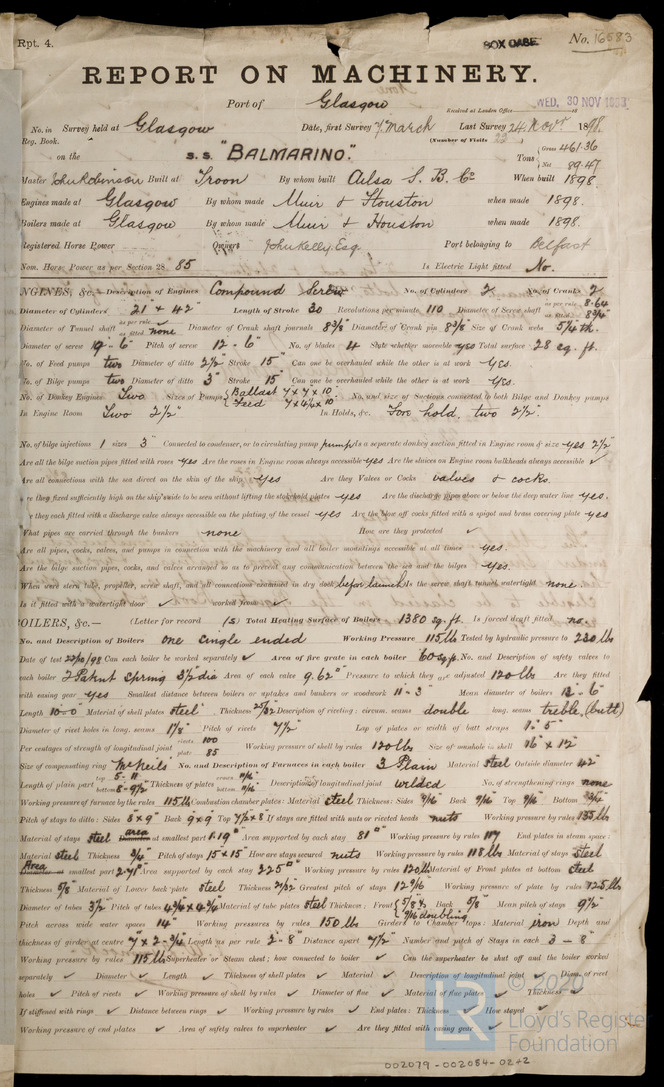 Rpt. 4.
BOX CASE
No. 16583
REPORT ON MACHINERY.
Port of Glasgow
Received at London Office WED. 30 NOV 1898
No. in Survey held at Glasgow Date, first Survey 7th March Last Survey 24 Novr 1898.
Reg. Book. (Number of Visits
on the S.S. "BALMARINO." Tons Gross 461.36 Net 89.47
Master Built at Troon By whom built Ailsa S. B. Co When built 1898.
Engines made at Glasgow By whom made Muir & Houston when made 1898.
Boilers made at Glasgow By whom made Muir & Houston when made 1898.
Registered Horse Power Owners John Kelly. Esq. Port belonging to Belfast
Nom. Horse Power as per Section 28 85 Is Electric Light fitted No.
ENGINES, &c.— Description of Engines Compound Screw No. of Cylinders 2 No. of Cranks 2
Diameter of Cylinders 21" & 42" Length of Stroke 30 Revolutions per minute 110 Diameter of Screw shaft as per rule 8.64 as fitted 8 3/4"
Diameter of Tunnel shaft as per rule as fitted none Diameter of Crank shaft journals 8 3/8" Diameter of Crank pin 8 3/8 Size of Crank webs 5 1/4 th.
Diameter of screw 9-6" Pitch of screw 12-6" No. of blades 4 State whether moveable yes Total surface 28 sq. ft.
No. of Feed pumps two Diameter of ditto 2 1/2" Stroke 15" Can one be overhauled while the other is at work yes.
No. of Bilge pumps two Diameter of ditto 3" Stroke 15" Can one be overhauled while the other is at work yes.
No. of Donkey Engines Two Sizes of Pumps Ballast 7 x 7 x 10. Feed 7 x 4 1/2 x 10 No. and size of Suctions connected to both Bilge and Donkey pumps
In Engine Room Two 2 1/2" In Holds, &c. Fore hold, two 2 1/2".
No. of bilge injections 1 sizes 3" Connected to condenser, or to circulating pump pump Is a separate donkey suction fitted in Engine room & size yes 2 1/2"
Are all the bilge suction pipes fitted with roses yes Are the roses in Engine room always accessible yes Are the sluices on Engine room bulkheads always accessible ✓
Are all connections with the sea direct on the skin of the ship yes Are they Valves or Cocks valves & cocks.
re they fixed sufficiently high on the ship's side to be seen without lifting the stokehold plates yes Are the discharge pipes above or below the deep water line yes.
they each fitted with a discharge valve always accessible on the plating of the vessel yes Are the blow off cocks fitted with a spigot and brass covering plate yes
What pipes are carried through the bunkers none How are they protected ✓
Are all pipes, cocks, valves, and pumps in connection with the machinery and all boiler mountings accessible at all times yes.
Are the bilge suction pipes, cocks, and valves arranged so as to prevent any communication between the sea and the bilges yes.
When were stern tube, propeller, screw shaft, and all connections examined in dry dock before launch Is the screw shaft tunnel watertight none.
Is it fitted with a watertight door ✓ worked from ✓
BOILERS, &c.— (Letter for record (S) Total Heating Surface of Boilers 1380 sq. ft. Is forced draft fitted no.
No. and Description of Boilers one single ended Working Pressure 115 lbs Tested by hydraulic pressure to 230 lbs
Date of test 22/10/98 Can each boiler be worked separately ✓ Area of fire grate in each boiler 60 sq. ft. No. and Description of safety valves to
each boiler 2 Patent Spring 3 1/2 dia Area of each valve 9.62" Pressure to which they are adjusted 120 lbs Are they fitted
with easing gear yes Smallest distance between boilers or uptakes and bunkers or woodwork 11-3" Mean diameter of boilers 13-6"
Length 10-0 Material of shell plates steel Thickness 25/32 Description of riveting: circum. seams double long. seams treble (butt)
Diameter of rivet holes in long. seams 1 1/8 Pitch of rivets 7 1/2 Lap of plates or width of butt straps 1-5"
Per centages of strength of longitudinal joint rivets 100 plate 85 Working pressure of shell by rules 120 lbs Size of manhole in shell 16" x 12"
Size of compensating ring McNeils No. and Description of Furnaces in each boiler 3 Plain Material steel Outside diameter 42"
Length of plain part top 5-11 bottom 8-9 1/2 Thickness of plates crown 11/16 bottom 11/16 Description of longitudinal joint welded No. of strengthening rings none
Working pressure of furnace by the rules 115 lbs Combustion chamber plates: Material steel Thickness: Sides 9/16 Back 9/16 Top 9/16 Bottom
Pitch of stays to ditto: Sides 8 x 9" Back 9 x 9 Top 7 1/2 x 8 If stays are fitted with nuts or riveted heads nuts Working pressure by rules 135 lbs
Material of stays steel area at smallest part 1.19" Area supported by each stay 81" Working pressure by rules 117 End plates in steam space:
Material steel Thickness Pitch of stays 15" x 15" How are stays secured nuts Working pressure by rules 118 lbs Material of stays Steel
Area smallest part 2.71" Area supported by each stay 225" Working pressure by rules 120 lbs Material of Front plates at bottom steel
Thickness 5/8 Material of Lower back plate steel Thickness 21/32 Greatest pitch of stays 12 9/16 Working pressure of plate by rules 125 lbs
Diameter of tubes 3 1/2 Pitch of tubes 4 3/4 x 4 3/4 Material of tube plates steel Thickness: Front 5/8 & 9/16 doubling Back 5/8 Mean pitch of stays 9 1/2"
Pitch across wide water spaces 14" Working pressures by rules 150 lbs Girders to Chamber tops: Material iron Depth and
thickness of girder at centre 7 x 2-3/4 Length as per rule 2-8" Distance apart 7 1/2 Number and pitch of Stays in each 3 - 8"
Working pressure by rules 115 lbs Superheater or Steam chest; how connected to boiler ✓ Can the superheater be shut off and the boiler worked
separately ✓ Diameter ✓ Length ✓ Thickness of shell plates ✓ Material ✓ Description of longitudinal joint ✓ Diam. of rivet
holes ✓ Pitch of rivets ✓ Working pressure of shell by rules ✓ Diameter of flue ✓ Material of flue plates ✓ Thickness ✓
If stiffened with rings ✓ Distance between rings ✓ Working pressure by rules ✓ End plates: Thickness ✓ How stayed ✓
Working pressure of end plates ✓ Area of safety valves to superheater ✓ Are they fitted with easing gear ✓
© 2020
LR
Lloyd's Register
Foundation
002079-002084-0242